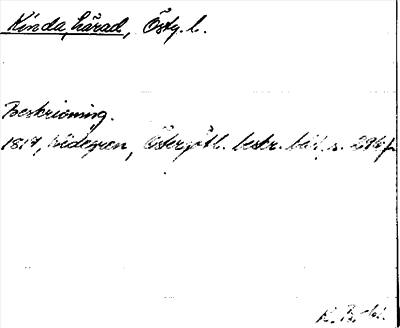 Kinda härad, Östg. l.
Beskrivning.
1817, Widegren, Östergötl. beskr. bd 1, s. 296 f
K. B.